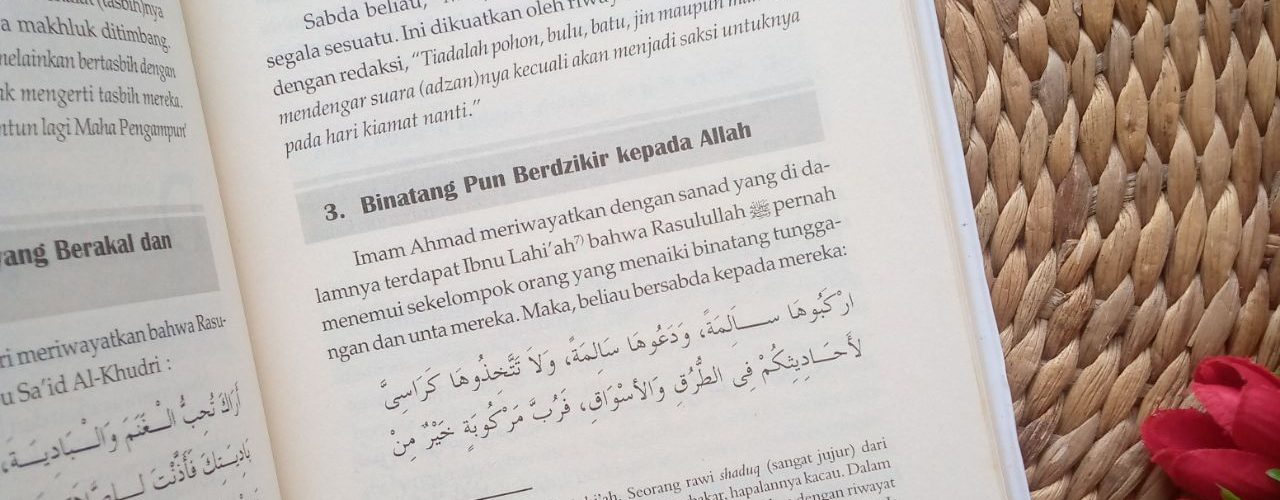 (tasbih)nya
a makhluk ditimbang,
melainkan bertasbih dengan
ak mengerti tasbih mereka.
ntun lagi Maha Pengampun"
yang Berakal dan
ri meriwayatkan bahwa Rasu-
u Sa'id Al-Khudri :
أَرَاكَ تُحِبُّ الْغَنَمَ وَالْبَادِيَةَ،
بَادِيَتِكَ فَأَذَّنْتَ
Sabda beliau,
segala sesuatu. Ini dikuatkan oleh
dengan redaksi, "Tiadalah pohon, bulu, batu, jin maupun
mendengar suara (adzan)nya kecuali akan menjadi saksi untuknya
pada hari kiamat nanti."
3. Binatang Pun Berdzikir kepada Allah
Imam Ahmad meriwayatkan dengan sanad yang di da-
lamnya terdapat Ibnu Lahi'ah7) bahwa Rasulullah ﷺ pernah
menemui sekelompok orang yang menaiki binatang tungga-
ngan dan unta mereka. Maka, beliau bersabda kepada mereka:
ارْكَبُوهَا سَالِمَةً، وَدَعُوهَا سَالِمَةً، وَلاَ تَتَّخِذُوهَا كَرَاسِيَّ
لأَحَادِيثِكُمْ فِي الطُّرُقِ وَالأَسْوَاقِ، فَرُبَّ مَرْكُوبَةٍ خَيْرٌ مِنْ
Seorang rawi shaduq (sangat jujur) dari
hapalannya kacau. Dalam
dengan riwayat